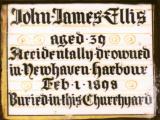 John James Ellis
aged 39
Accidentally drowned
in Newhaven Harbour
Feb 1 1898
Buried in this Churchyard